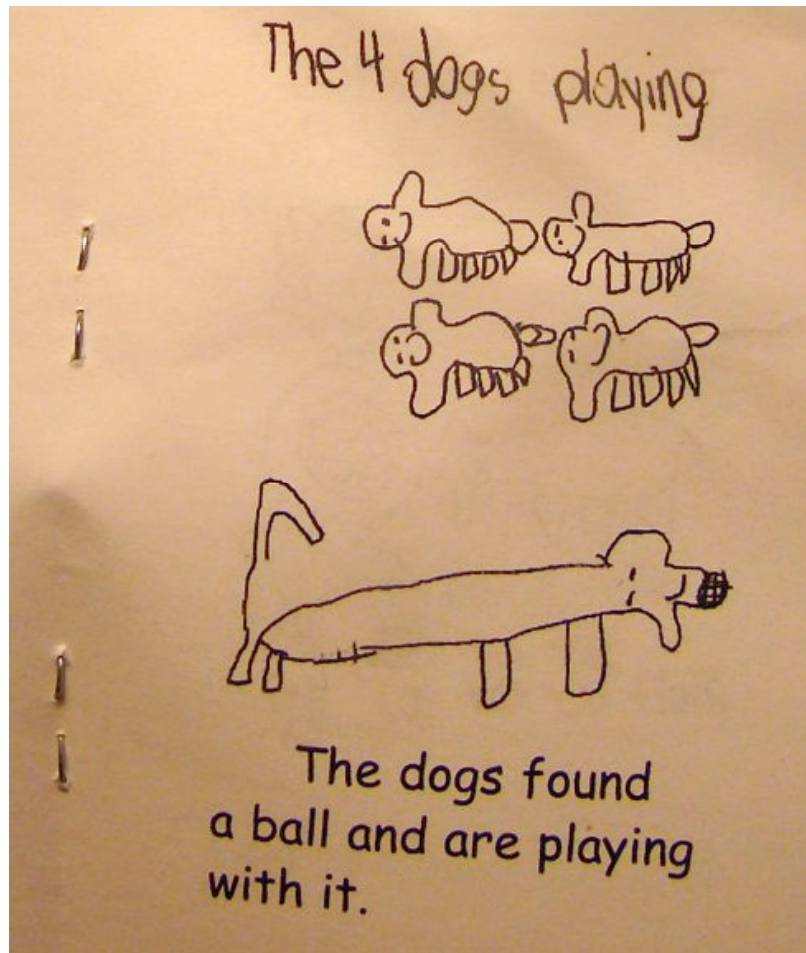 The 4 dogs playing
The dogs found
a ball and are playing
with it.